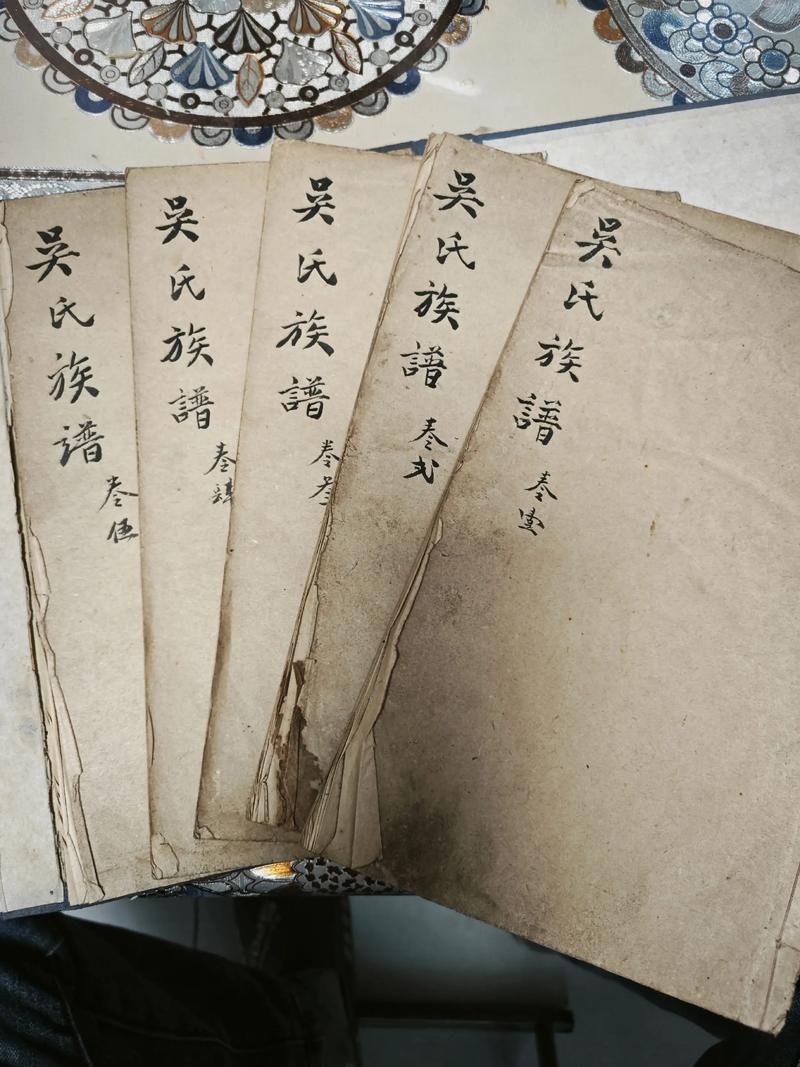 吳氏族譜
卷壹
吳氏族譜
卷弍
吳氏族譜
卷叁
吳氏族譜
卷肆
吳氏族譜
卷伍